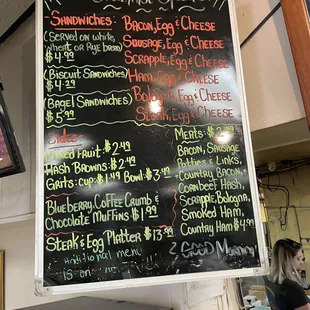 Sandwiches:
(Served on white,
wheat or Rye bread)
$4.99
(Biscuit Sandwiches)
$4.29
(Bagel Sandwiches)
$5.99
Bacon, Egg & Cheese
Sausage, Egg & Cheese
Scrapple, Egg & Cheese
Ham, Egg & Cheese
Bologna, Egg & Cheese
Steak, Egg & Cheese
Sides:
Mixed Fruit: $2.49
Hash Browns: $2.49
Grits: Cup: $1.49 Bowl: $3.49
Blueberry, Coffee Crumb &
Chocolate Muffins $1.99
Steak & Egg Platter $13.99
menu
is on
Meats:
Bacon, Sausage
Patties & Links,
Country Bacon,
Cornbeef Hash,
Scrapple, Bologna,
Smoked Ham,
Country Ham $4.99
Good Morning!